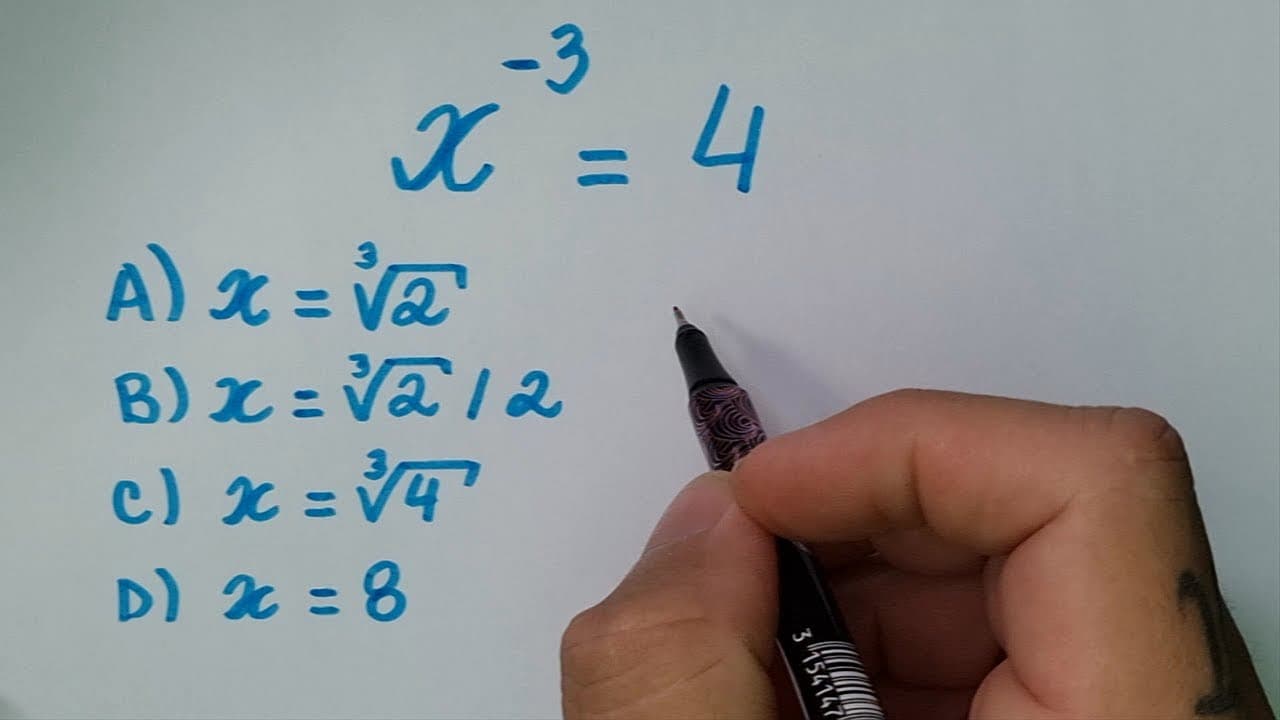 x⁻³ = 4
A) x = ³√2
B) x = ³√2 / 2
C) x = ³√4
D) x = 8
3 154147